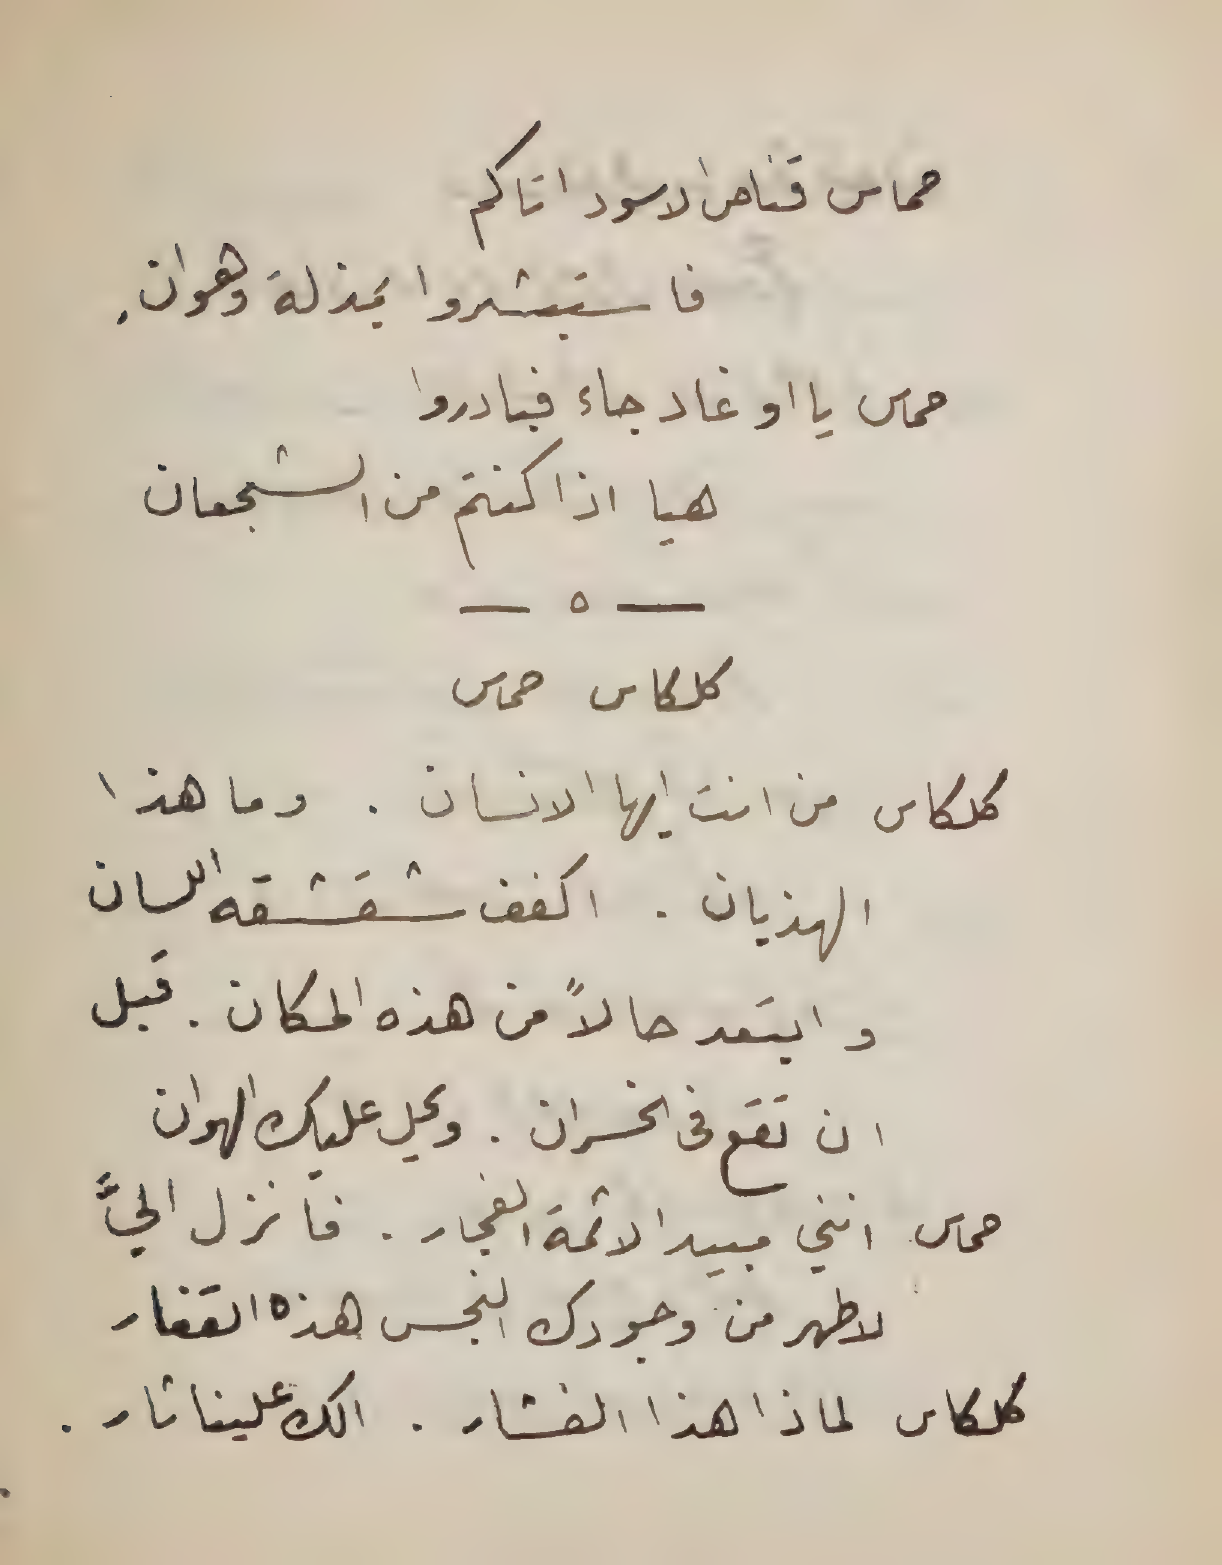 حماس قناص الاسود اتاكم
فاستبشروا بمذلة وهوان.
حماس يا اوغاد جاء فبادروا
هيا اذا كنتم من الشجعان
— ٥ —
كلكاس حماس
كلكاس من انت ايها الانسان . وما هذا
الهذيان . اكفف شقشقه اللسان
وابتعد حالاً من هذه المكان . قبل
ان تقع فى الخسران . ويحل عليك الهوان
حماس اننى مبيد الائمة الفجار . فانزل اليَّ
لاطهر من وجودك النجس هذه القفار
كلكاس لماذا هذا الفشار . الك علينا ثار .